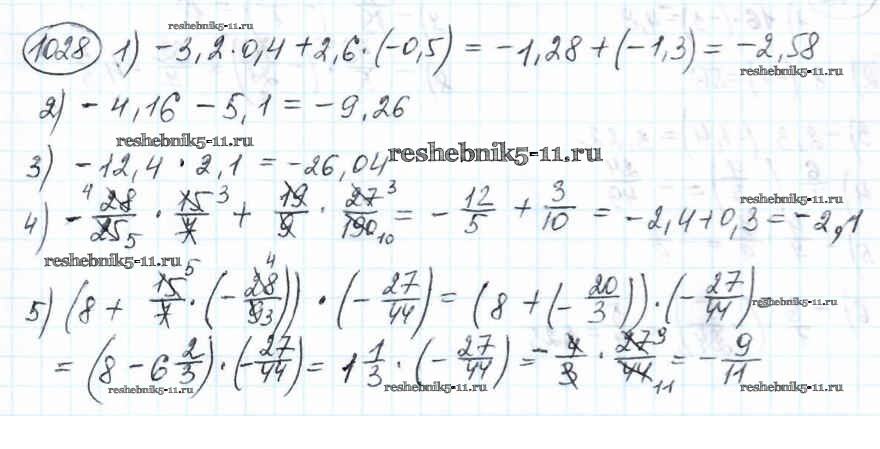 reshebnik5-11.ru
1028 1) -3,2·0,4+2,6·(-0,5) = -1,28+(-1,3) = -2,58
reshebnik5-11.ru
2) -4,16-5,1=-9,26
reshebnik5-11.ru
3) -12,4·2,1=-26,04
reshebnik5-11.ru
4) -28/25·15/7+19/9·27/190=-12/5+3/10=-2,4+0,3=-2,1
reshebnik5-11.ru
reshebnik5-11.ru
5) (8+15/7·(-28/9))·(-27/44)=(8+(-20/3))·(-27/44)=
reshebnik5-11.ru
=(8-6 2/3)·(-27/44)=1 1/3·(-27/44)=-4/3·27/44=-9/11
reshebnik5-11.ru
reshebnik5-11.ru
reshebnik5-11.ru